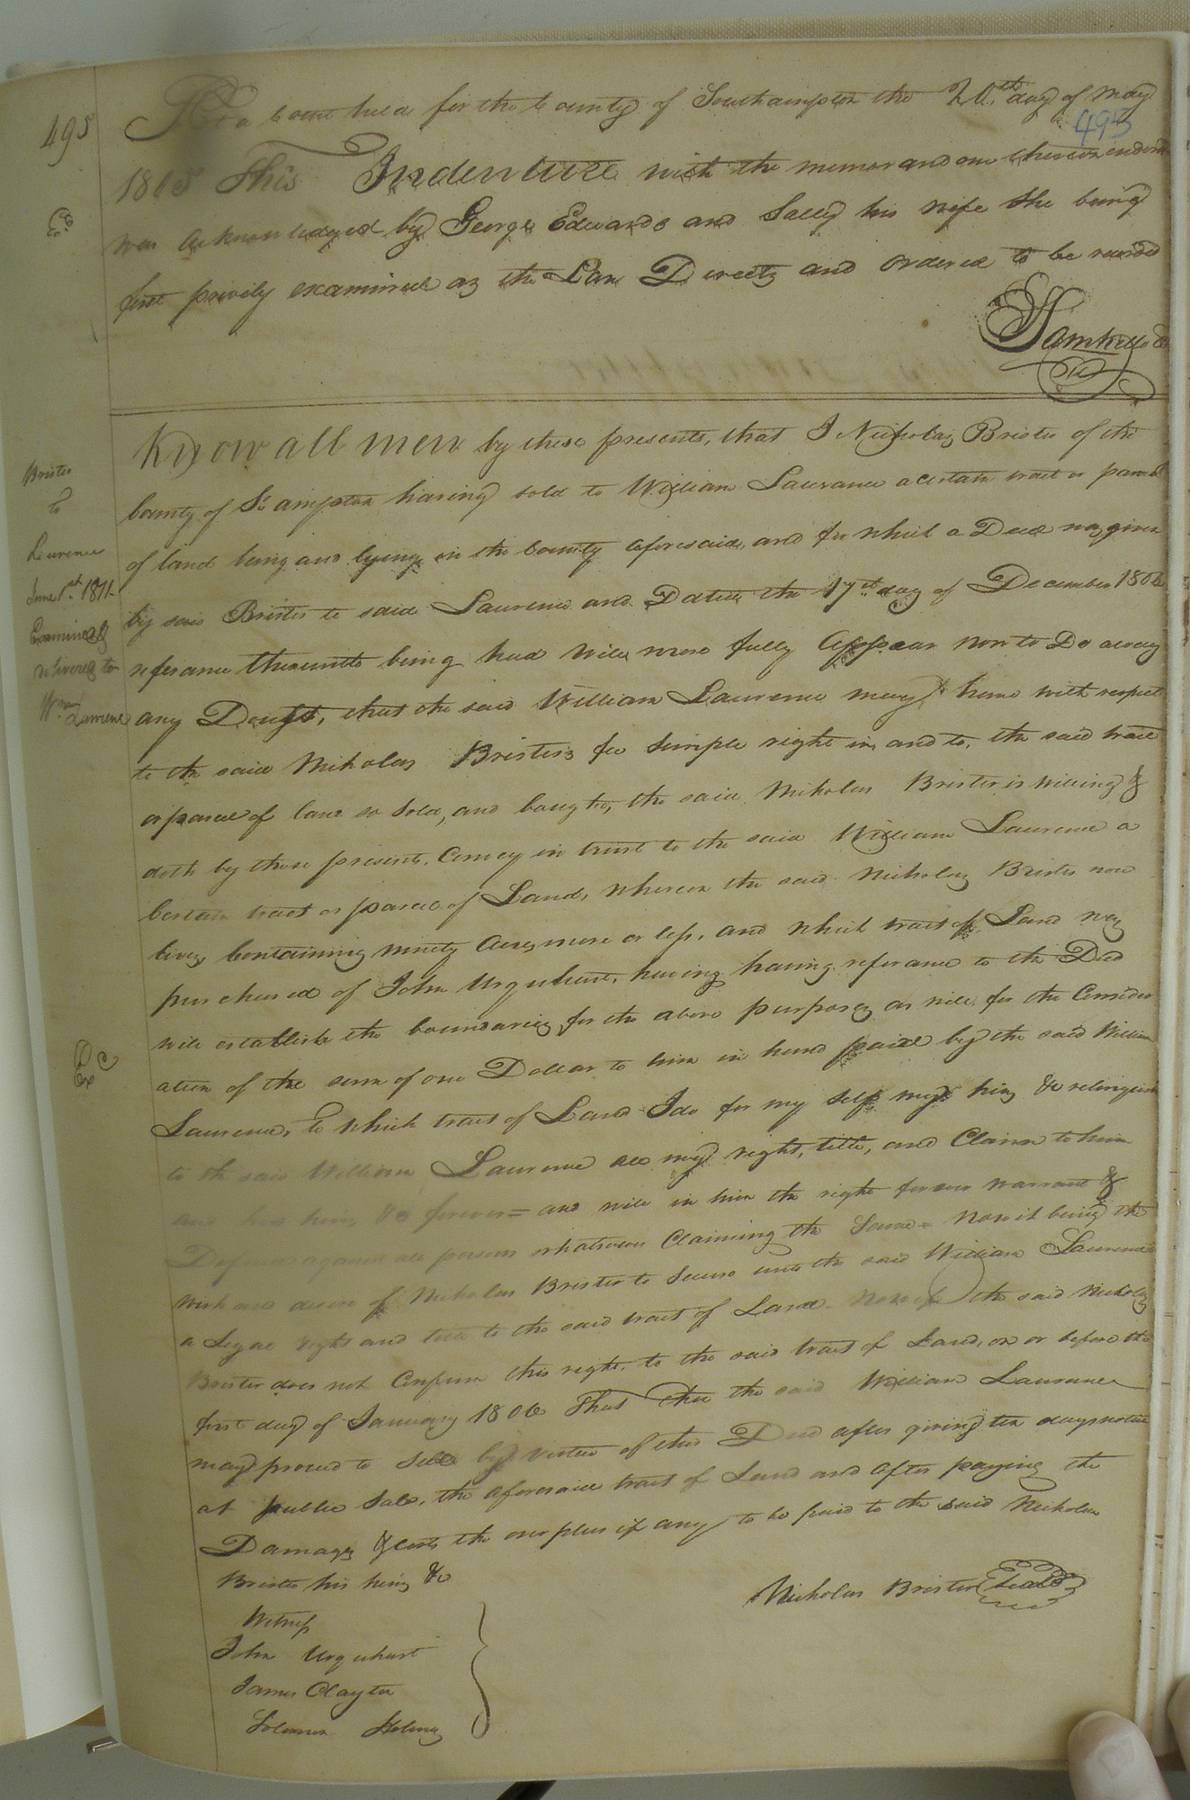 495
At a Court held for the County of Southampton the 20th day of May
495
1805 This Indenture with the memorandum thereon endorsed
Ex
was acknowledged by George Edwards and Sally his wife she being
first privily examined as the Law Directs and ordered to be recorded
Know all men by these presents, that I Nicholas Brister of the
County of So ampton having sold to William Laurance a certain tract or parcel
of land being and lying in the County aforesaid, and for which a Deed was given
by said Brister to said Laurence and Dated the 17th day of December 180
referance thereunto being had will more fully appear now to Do away
any Doubt, that the said William Laurence may have with respect
to the said Nicholas Bristers fee Simple right in, and to, the said tract
or parcel of land so sold, and bought, the said Nicholas Brister is willing &
doth by these presents, Convey in trust to the said William Laurence a
Certain tract or parcel of Land, whereon the said Nicholas Brister now
lives, Containing ninety Acres more or less, and which tract of Land was
purchased of John Urquhart, having having referance to the Deed
will establish the boundaries for the above purposes as will for the Consider
ation of the sum of one Dollar to him in hand paid by the said William
Laurence, to which tract of Land I do for my self my heirs &c relinquish
to the said William Laurence all my right, title, and Claim to him
and his heirs &c forever = and will in him the right forever warrant &
Defend against all persons whatsoever Claiming the Same = Now it being the
wish and desire of Nicholas Brister to Secure unto the said William Laurence
a Legal right and title to the said tract of Land. Now if the said Nicholas
Brister does not Confirm this right, to the said tract of Land, on or before the
first day of January 1806 That then the said William Laurance
may proceed to Sell by virtue of this Deed after giving ten days notice
at public Sale, the aforesaid tract of Land and after paying the
Damages & Costs the overplus if any to be paid to the said Nicholas
Brister his heirs &c
Nicholas Brister Seal
Witness
John Urquhart
James Clayton
Solomon
Brister
to
Laurence
June 1st 1811
Examined &
delivered to
Wm Laurence
Ex